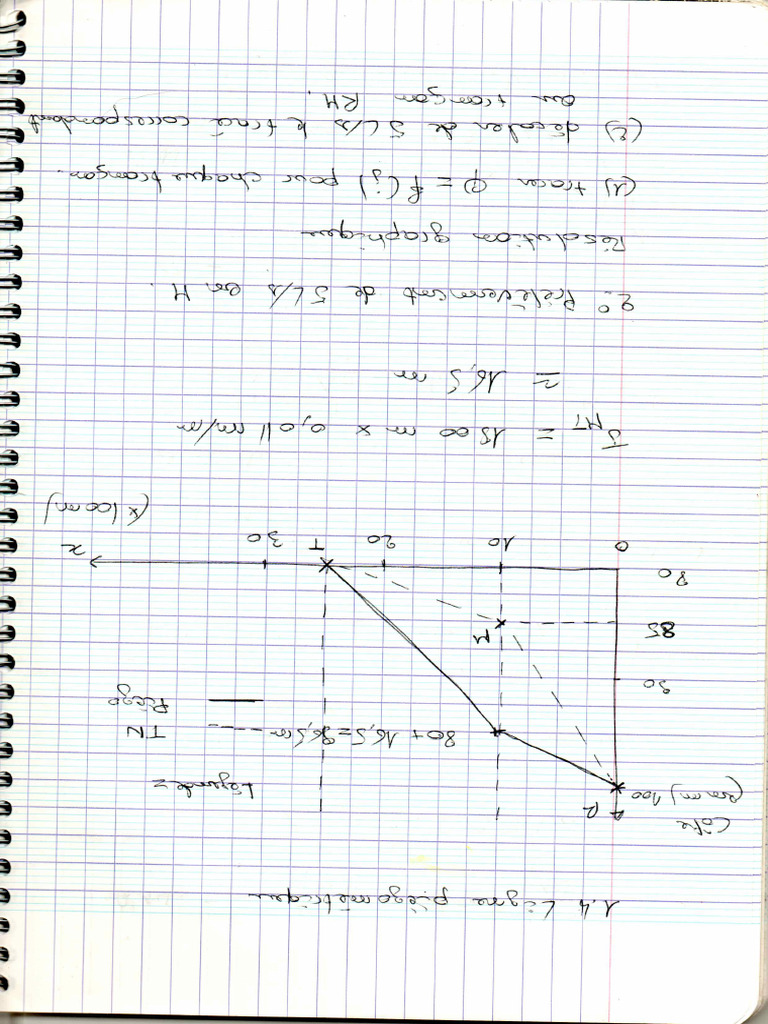 1.4 Ligne piézométrique
Côte
(en m)
R
100
Légende =
80 + 16,5 = 96,5 m
TN
Piézo
90
M
85
80
0
10
20
T
30
x
(x 100 m)
J_MT = 1500 m x 0,011 m/m
= 16,5 m
2° Prélèvement de 5 L/s en M.
Résolution graphique
(1) tracer Q = f(j) pour chaque tronçon.
(2) décaler de 5 L/s le tracé correspondant
au tronçon RM.